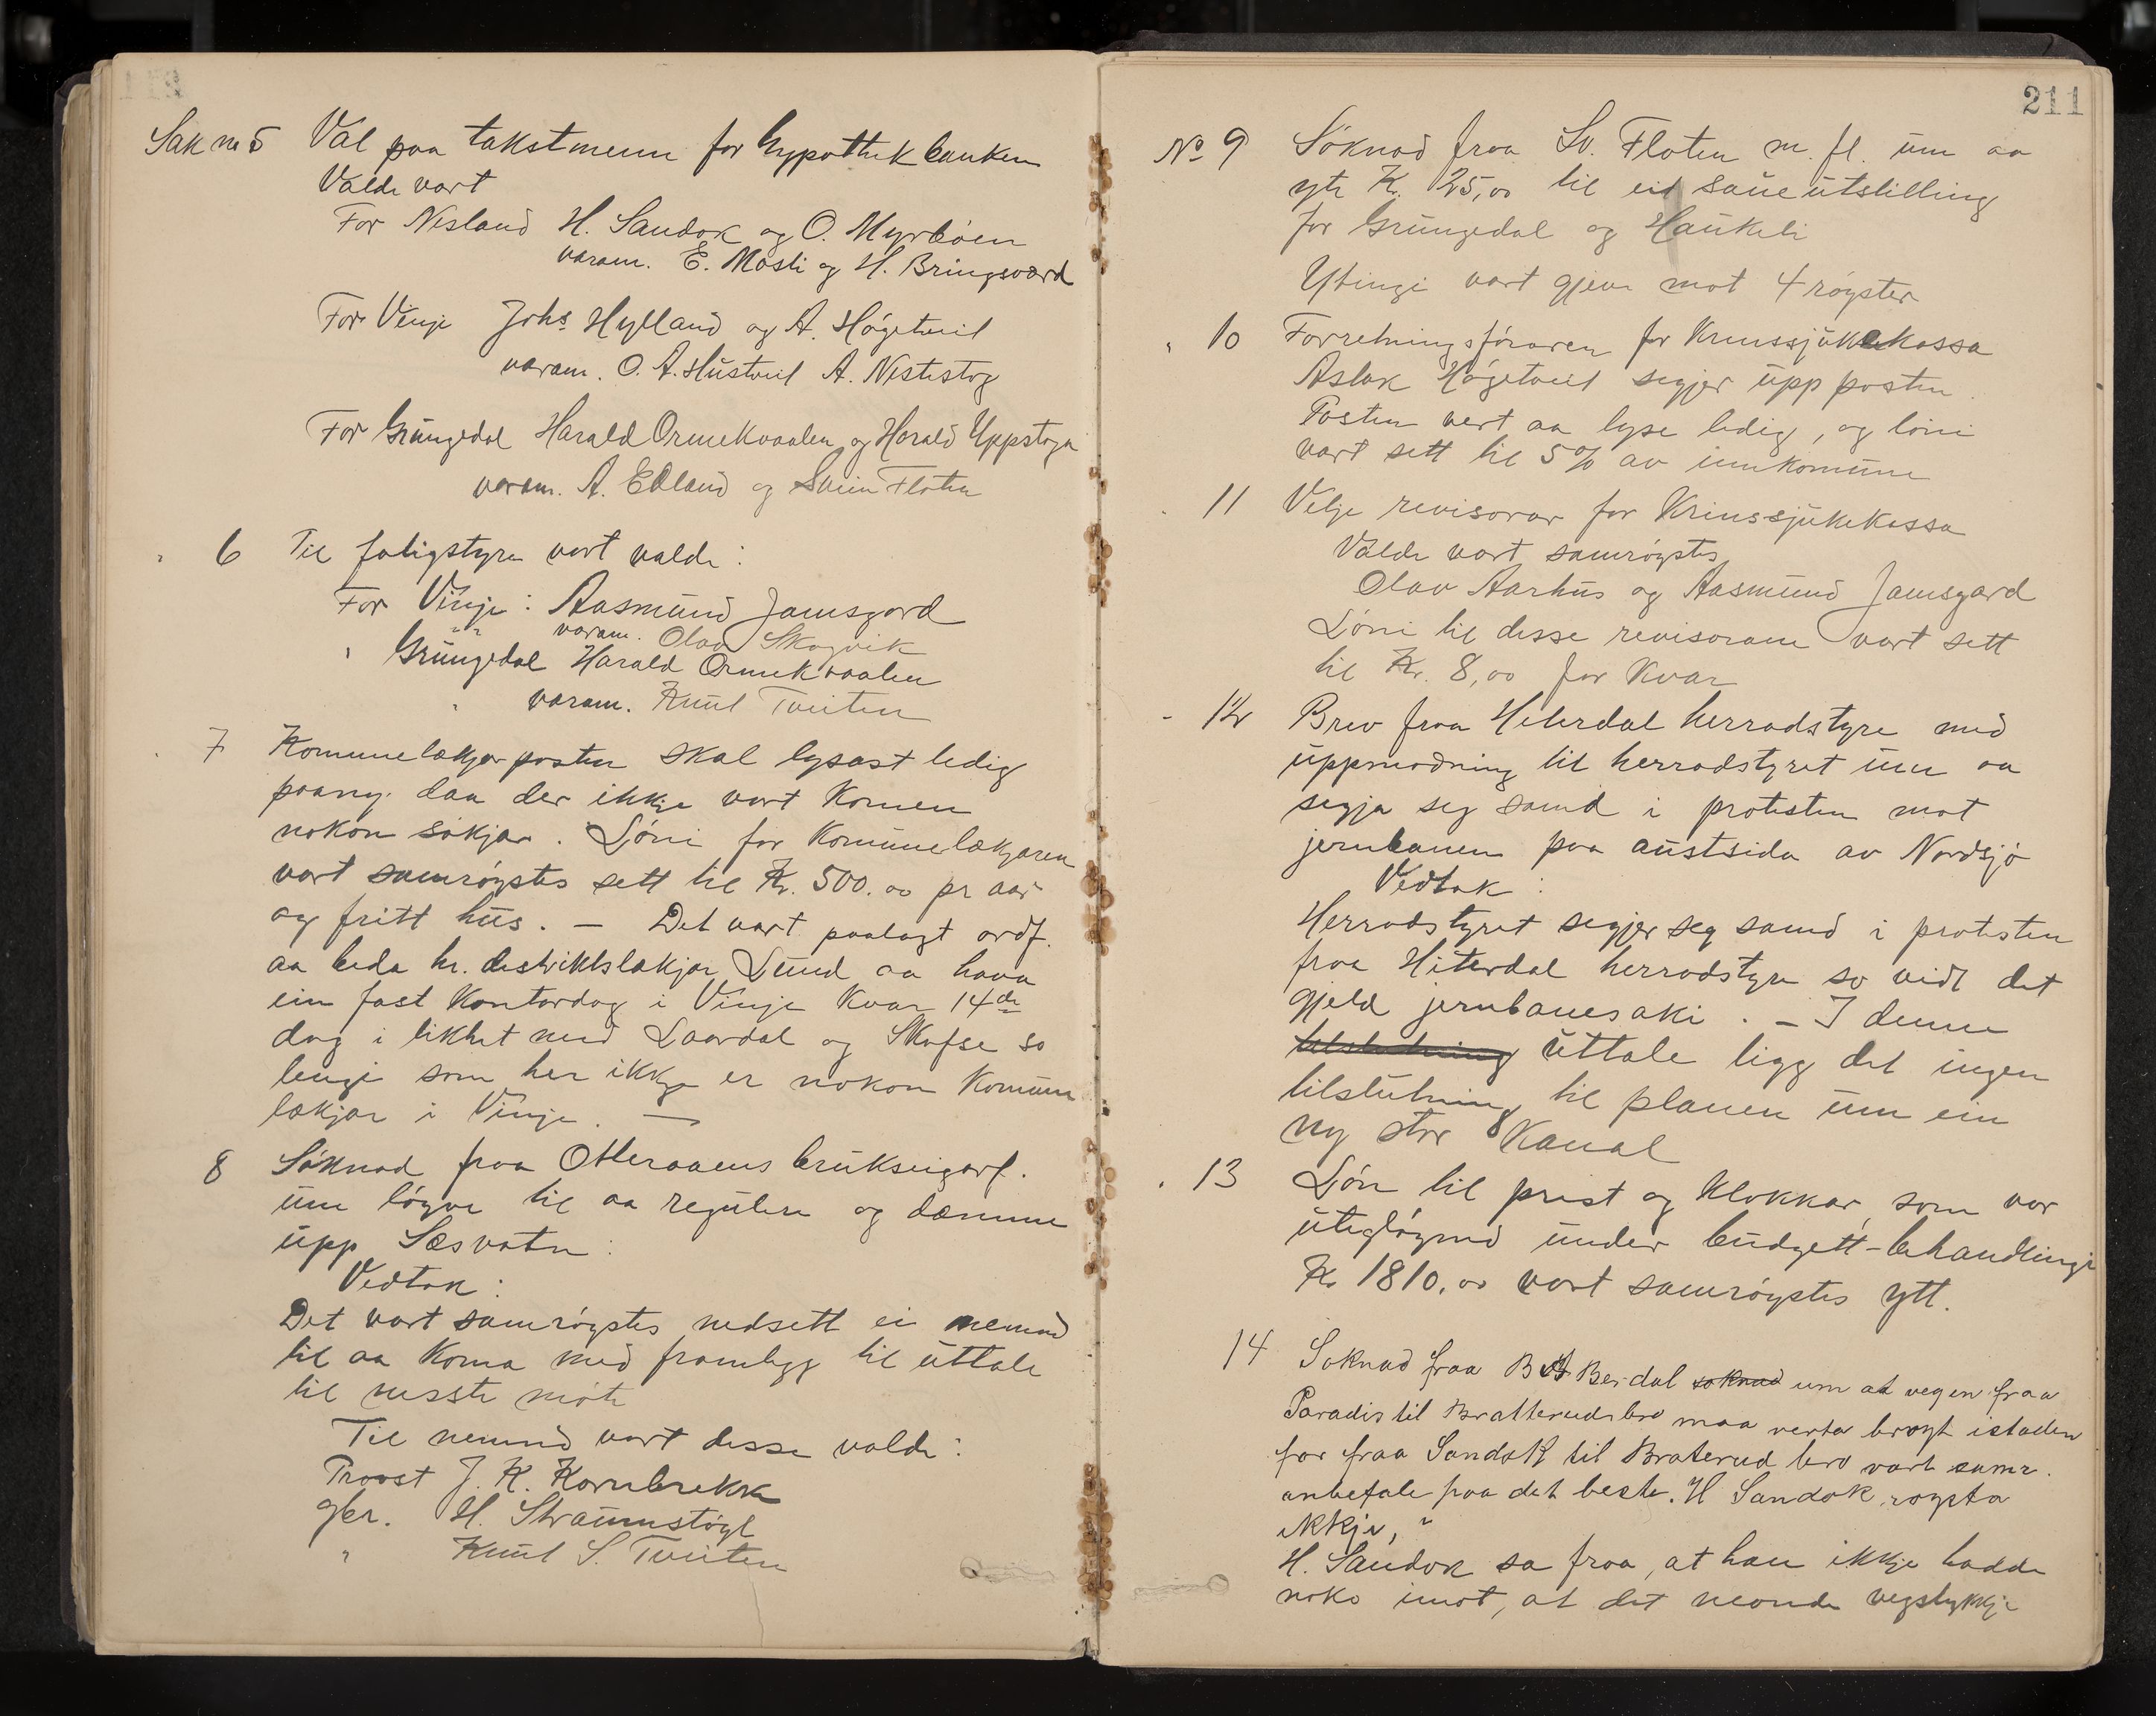 Sak no 5 Val paa takstmenn for hypothekbanken
Valde vart
For Nesland H. Sandok og O. Myrbøen
varam. E. Mosli og H. Bringsværd
For Vinje Johs Hylland og A. Høgetveit
varam. O. A. Hustveit A. Nestestog
For Grungedal Harald Ormekvaalen og Harald Uppstoga
varam. A. Edland og Svein Floten
" 6 Til forligstyre vart valde:
For Vinje: Aasmund Jamsgard
" " varam. Olav Skogvik
" Grungedal Harald Ormekvaalen
" varam. Knut Tveiten
" 7 Komunelækjarposten skal lysast ledig
paany. daa der ikkje vart komen
nokon søkjar. Løni for komunelækjaren
vart samrøystes sett til Kr. 500.00 pr aar
og fritt hus. — Det vart paalagt ordf.
aa beda hr. distriktslækjar Lund aa hava
ein fast kontordag i Vinje kvar 14de
dag i likhet med Laardal og Skafse so
lengi som her ikkje er nokon komune
lækjar i Vinje. —
8 Søknad fraa Otteraaens brukseigarf.
um løyve til aa regulere og dæmme
upp Sæsvatn:
Vedtak:
Det vart samrøystes nedsett ei nemnd
til aa koma med framlegg til uttale
til næste møte
Til nemnd vart desse valde:
Provst J. K. Kornbrekke
gbr. H. Straumstøyl
" Knut S. Tveiten
211
No 9 Søknad fraa Sv. Floten m. fl. um aa
yte Kr. 25,00 til ei saueutstilling
for Grungedal og Haukeli
Ytingi vart gjeve mot 4 røyster
" 10 Forretningsføraren for Krinssjukekassa
Aslak Høgetveit segjer upp posten.
Posten vert aa lyse ledig, og løni
vart sett til 5 % av innkomune
" 11 Velje revisorar for Krinssjukekassa
Valde vart samrøystes
Olav Aarhus og Aasmund Jamsgard
Løni til desse revisorane vart sett
til Kr. 8,00 for kvar
" 12 Brev fraa Hiterdal herradstyre med
uppmodning til herradstyret um aa
segja seg samd i protesten mot
jernbanen paa austsida av Nordsjø
Vedtak:
Herradstyret segjer seg samd i protesten
fraa Hiterdal herradstyre so vidt det
gjeld jernbanesaki. — I denne
tilslutning uttale ligg det ingen
tilslutning til planen um ein
ny stor kanal
" 13 Løn til prest og klokkar, som var
utegløymd under budgett-behandlingi
Kr 1810.00 vart samrøystes ytt.
14 Soknad fraa B Berdal soknad um at vegen fraa
Paradis til Bratterudsbro maa verta brøyt istaden
for fraa Sandok til Braterud bro vart samr.
anbefale paa det beste. H Sandok røysta
ikkje,"
H. Sandok sa fraa, at han ikkje hadde
noko imot, at det nemnde vegstykkje